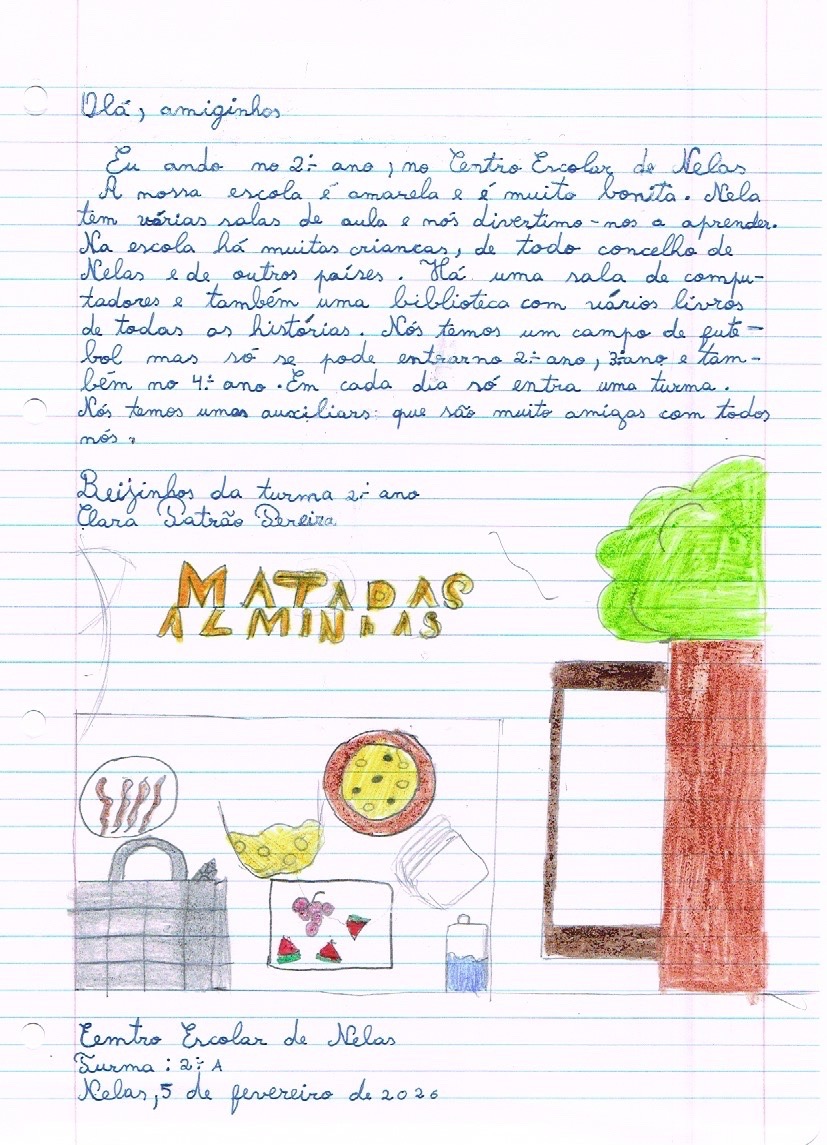 Olá, amiginhos
Eu ando no 2.º ano, no Centro Escolar de Nelas
A nossa escola é amarela e é muito bonita. Nela
têm várias salas de aula e nós divertimo-nos a aprender.
Na escola há muitas criancas, de todo concelho de
Nelas e de outros países. Há uma sala de compu-
tadores e também uma biblioteca com vários livros
de todas as histórias. Nós temos um campo de fute-
bol mas só se pode entrar no 2.º ano, 3.º ano e tam-
bém no 4.º ano. Em cada dia só entra uma turma.
Nós temos umas auxiliars que são muito amigas com todos
nós.
Beijinhos da turma 2.º ano
Clara Patrão Pereira
MATADAS
ALMINHAS
Cemtro Escolar de Nelas
Turma: 2.º A
Nelas, 5 de fevereiro de 2026